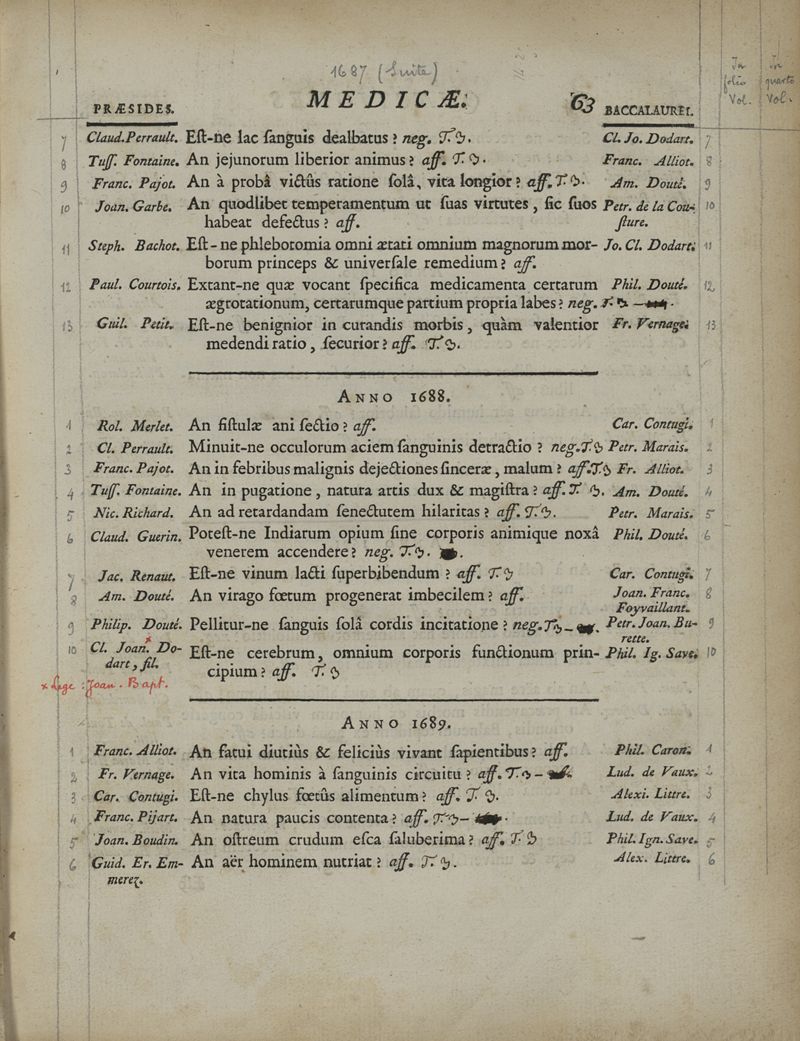 1687 (Suite)
In folio Vol. In quarto Vol.
MEDICÆ. 63
PRÆSIDES. BACCALAUREI.
7 Claud. Perrault. Eſt-ne lac ſanguis dealbatus? neg. Cl. Jo. Dodart. 7
8 Tuſſ. Fontaine. An jejunorum liberior animus? aff. Franc. Alliot. 8
9 Franc. Pajot. An à probâ victûs ratione ſolâ, vita longior? aff. Am. Douté. 9
10 Joan. Garbe. An quodlibet temperamentum ut ſuas virtutes, ſic ſuos Petr. de la Cou- 10
habeat defectus? aff. ſture.
11 Steph. Bachot. Eſt-ne phlebotomia omni ætati omnium magnorum mor- Jo. Cl. Dodart. 11
borum princeps & univerſale remedium? aff.
12 Paul. Courtois. Extant-ne quæ vocant ſpecifica medicamenta certarum Phil. Douté. 12
ægrotationum, certarumque partium propria labes? neg.
13 Guil. Petit. Eſt-ne benignior in curandis morbis, quàm valentior Fr. Vernage. 13
medendi ratio, ſecurior? aff.
ANNO 1688.
1 Rol. Merlet. An fiſtulæ ani ſectio? aff. Car. Contugi. 1
2 Cl. Perrault. Minuit-ne occulorum aciem ſanguinis detractio? neg. Petr. Marais. 2
3 Franc. Pajot. An in febribus malignis dejectiones ſinceræ, malum? aff. Fr. Alliot. 3
4 Tuſſ. Fontaine. An in pugatione, natura artis dux & magiſtra? aff. Am. Douté. 4
5 Nic. Richard. An ad retardandam ſenectutem hilaritas? aff. Petr. Marais. 5
6 Claud. Guerin. Poteſt-ne Indiarum opium ſine corporis animique noxâ Phil. Douté. 6
venerem accendere? neg.
7 Jac. Renaut. Eſt-ne vinum lacti ſuperbibendum? aff. Car. Contugi. 7
8 Am. Douté. An virago fœtum progenerat imbecilem? aff. Joan. Franc. 8
Foyvaillant.
9 Philip. Douté. Pellitur-ne ſanguis ſolâ cordis incitatione? neg. Petr. Joan. Bu- 9
rette.
10 Cl. Joan. Do- Eſt-ne cerebrum, omnium corporis functionum prin- Phil. Ig. Save. 10
dart, fil. cipium? aff.
x Lege: Joan. Bapt.
ANNO 1689.
1 Franc. Alliot. An fatui diutiùs & feliciùs vivant ſapientibus? aff. Phil. Caron. 1
2 Fr. Vernage. An vita hominis à ſanguinis circuitu? aff. Lud. de Vaux. 2
3 Car. Contugi. Eſt-ne chylus fœtûs alimentum? aff. Alexi. Littre. 3
4 Franc. Pijart. An natura paucis contenta? aff. Lud. de Vaux. 4
5 Joan. Boudin. An oſtreum crudum eſca ſaluberima? aff. Phil. Ign. Save. 5
6 Guid. Er. Em- An aër hominem nutriat? aff. Alex. Littre. 6
merez.